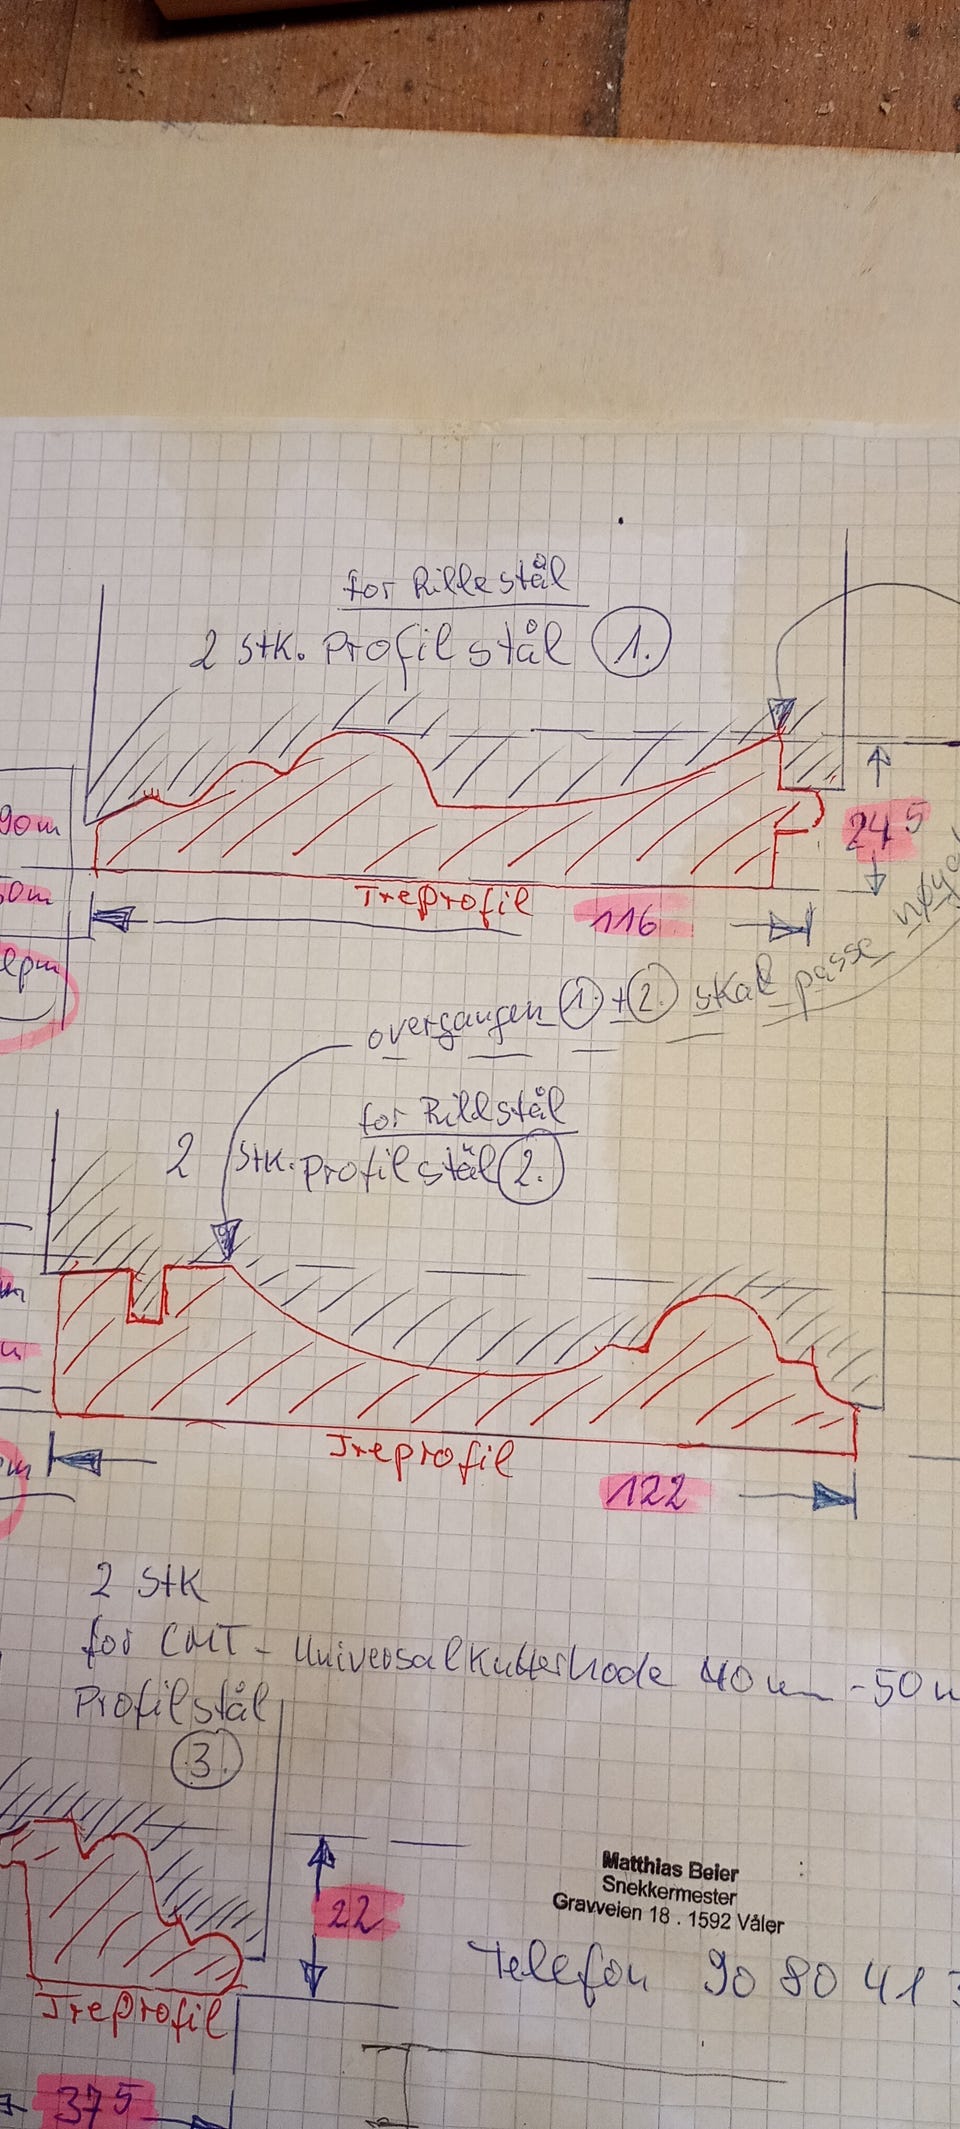 for Rillestål
2 Stk. Profilstål 1.
90m
24 5
50m
Treprofil
116
overgangen 1. + 2. skal passe
for Rillstål
2 Stk. Profilstål 2.
Treprofil
122
2 Stk
for CMT - Universalkutterhode 40 - 50
Profilstål
3.
Matthias Beier
Snekkermester
Gravveien 18 . 1592 Våler
22
Telefon 90 80 41
Treprofil
37 5